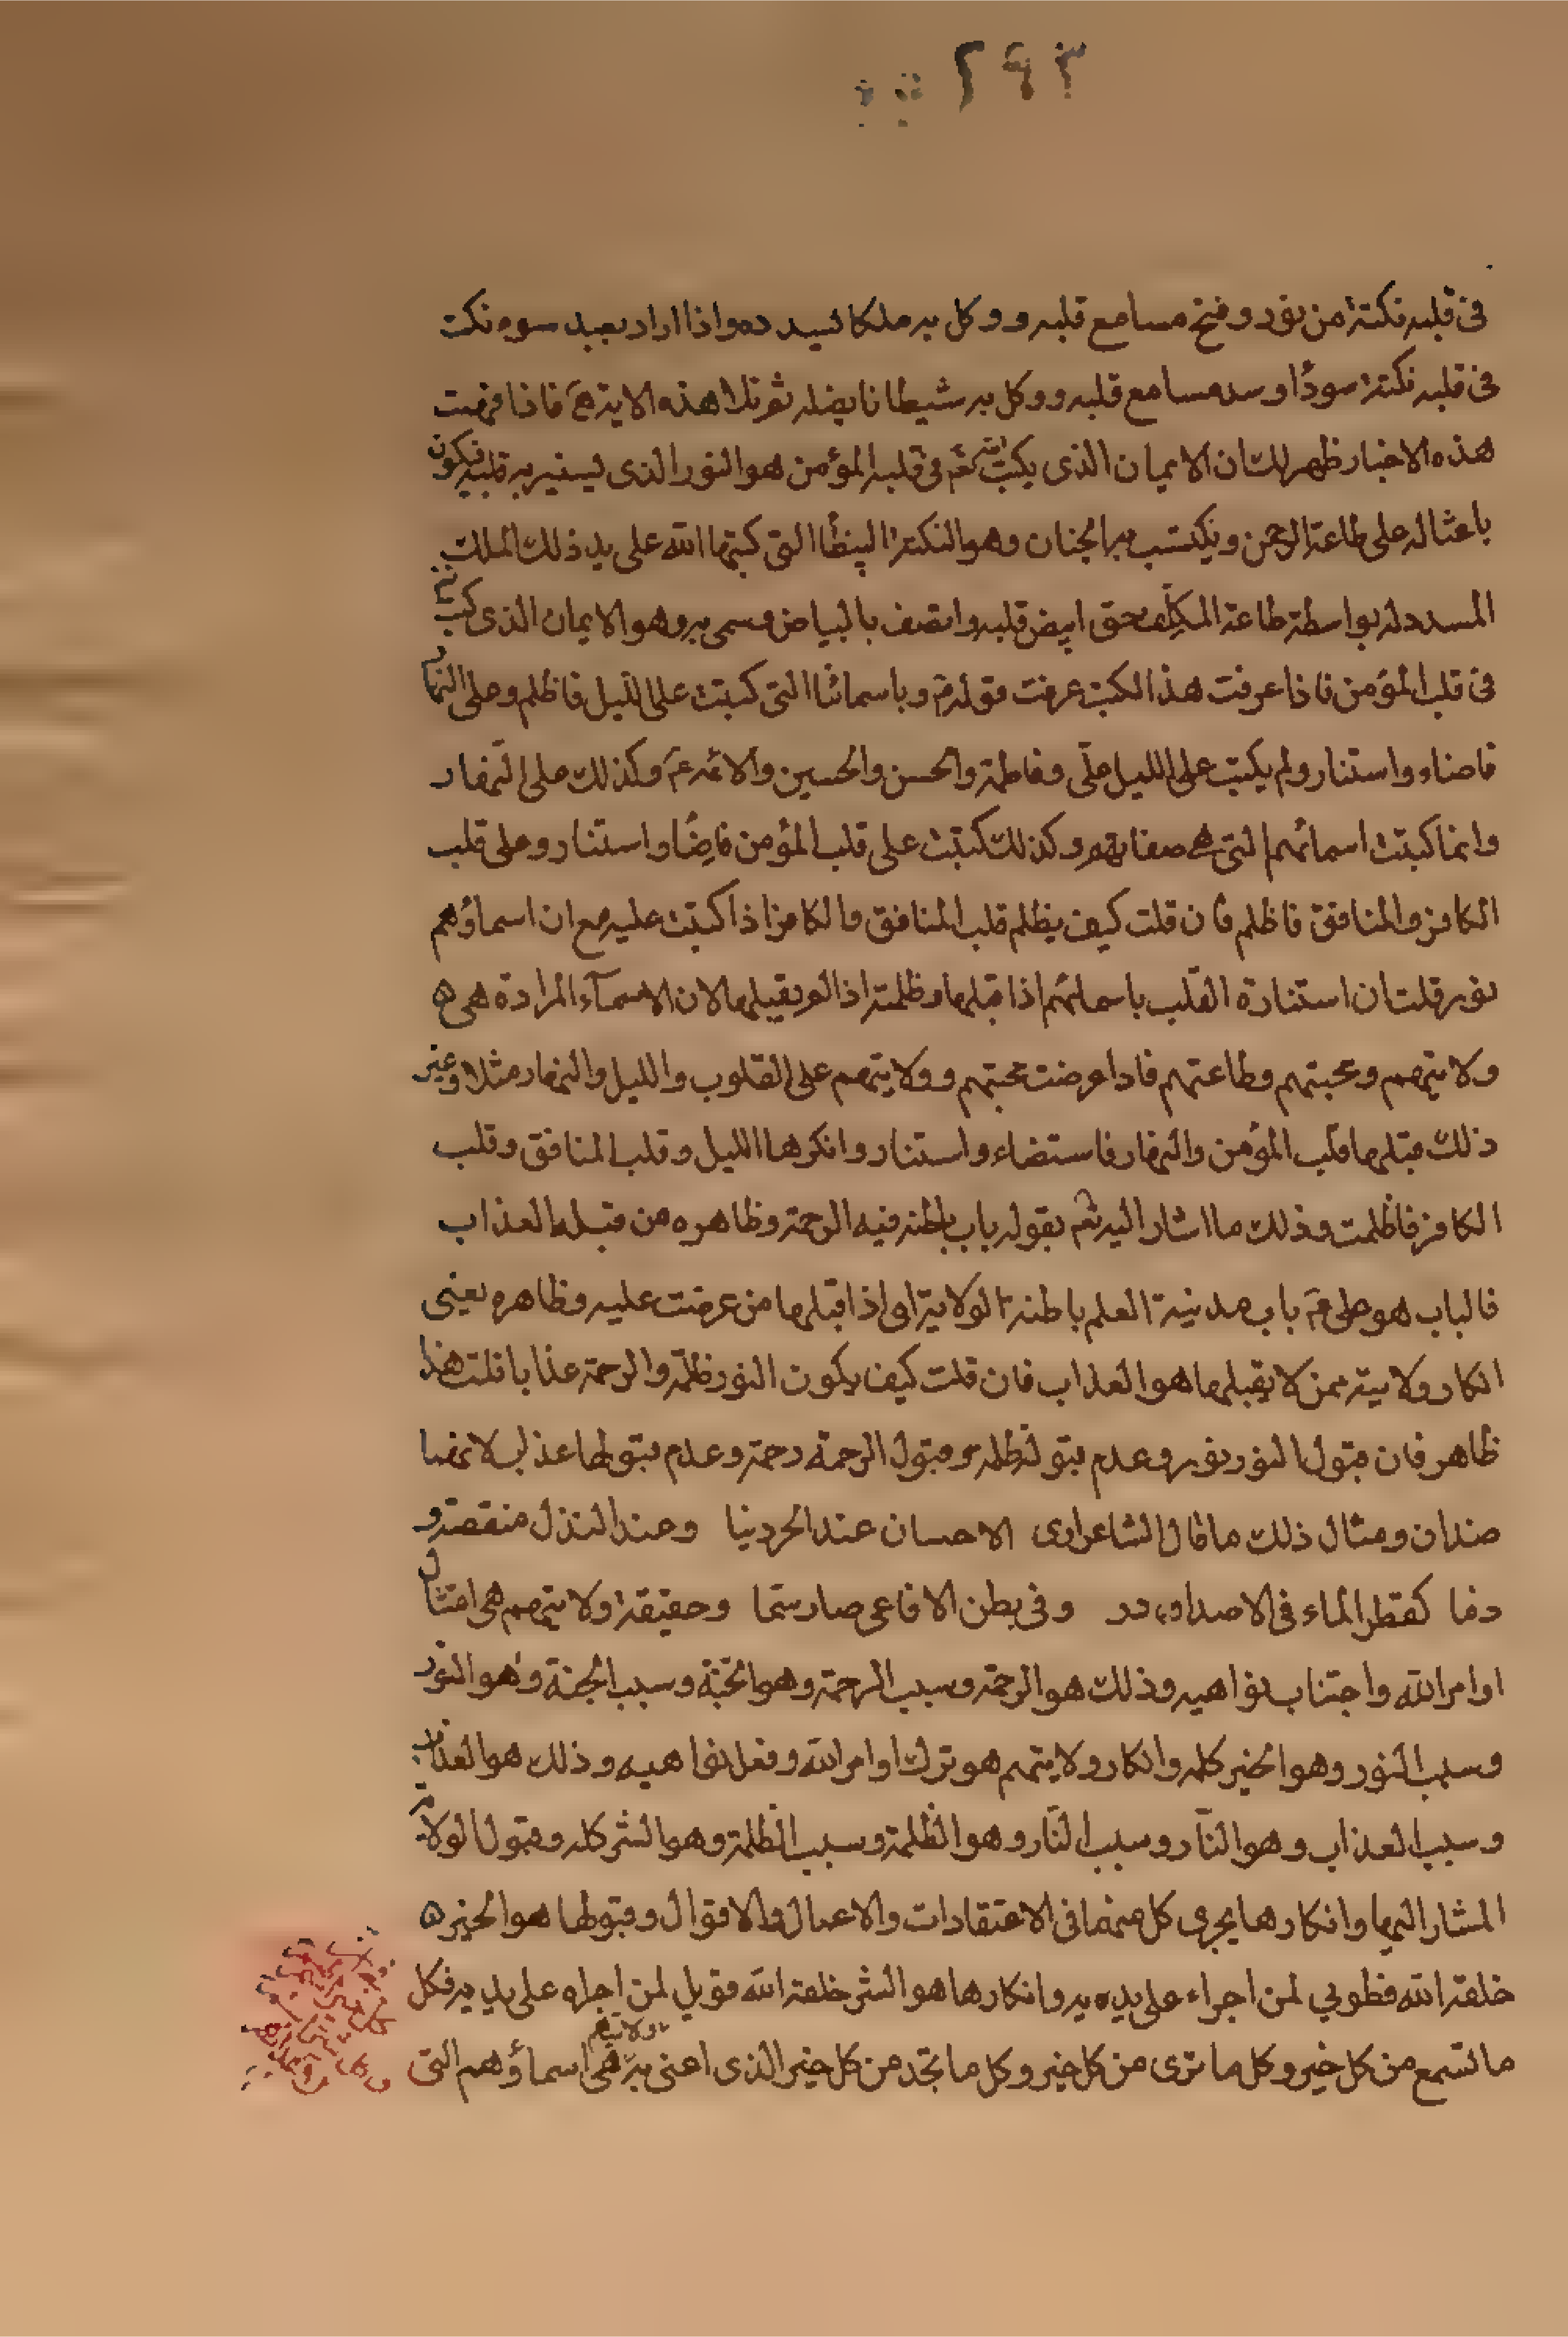 ٢٤٣
في قلبه نكتة من نور وفتح مسامع قلبه ووكل به ملكا يسدده واذا اراد بعبد سوء نكت
في قلبه نكتة سودا وسد مسامع قلبه ووكل به شيطانا يضله ثم تلا هذه الاية هـ فاذا فهمت
هذه الاخبار ظهر لك ان الايمان الذى يكتب الله تعم في قلبه المؤمن هو النور الذى يستنير به قلبه فيكون
باعثا له على طاعة الرحمن ويكتسب به الجنان وهو النكتة البيضا التي كتبها الله على يد ذلك الملك
المسدد له بواسطة طاعة المكلف حتى ابيض قلبه واتصف بالبياض وسمى به وهو الايمان الذى كتب
في قلب المؤمن فاذا عرفت هذا الكتب عرفت قوله وباسمائنا التى كتبت على الليل فاظلم وعلى النهار
فاضاء واستنار ولم يكتب على الليل على وفاطمة والحسن والحسين والائمة عم وكذلك على النهار
وانما كتبت اسمائهم التى هى صفاتهم وكذلك كتبت على قلب المؤمن فاضا واستنار وعلى قلب
الكافر والمنافق فاظلم فان قلت كيف يظلم قلب المنافق والكافر اذا كتبت عليه مع ان اسماؤهم
نور قلت ان استنارة القلب باسمائهم اذا قبلها وظلمته اذا لم يقبلها لان الاسمآء المرادة هى ه
ولايتهم ومحبتهم وطاعتهم فاذا عرضت محبتهم وولايتهم على القلوب والليل والنهار مثلا وغير
ذلك قبلها قلب المؤمن والنهار فاستضاء واستنار وانكرها الليل وقلب المنافق وقلب
الكافر فاظلمت وذلك ما اشار اليه تعم بقوله باب باطنه فيه الرحمة وظاهره من قبله العذاب
فالباب هو على عم باب مدينة العلم باطنه الولاية اى اذا قبلها من عرضت عليه وظاهره يعنى
انكار ولايته ممن لا يقبلها هو العذاب فان قلت كيف يكون النور ظلمة والرحمة عذابا قلت هذا
ظاهر فان قبول النور نور وعدم قبوله ظلمة وقبول الرحمة رحمة وعدم قبولها عذاب لانهما
ضدان ومثال ذلك ما قال الشاعر ارى الاحسان عند الحر دينا وعند النذل منقصة و
ذما كقطر الماء في الاصداف در وفى بطن الافاعى صار سما وحقيقة ولايتهم هى امتثال
اوامر الله واجتناب نواهيه وذلك هو الرحمة وسبب الرحمة وهو الجنة وسبب الجنة وهو النور
وسبب النور وهو الخير كله وانكار ولايتهم هو ترك اوامر الله وفعل نواهيه وذلك هو العذاب
وسبب العذاب وهو النار وسبب النار وهو الظلمة وسبب الظلمة وهو الشر كله وقبول الولاية
المشار اليها وانكارها يجرى كل منهما في الاعتقادات والاعمال والاقوال وقبولها هو الخير ه
خلقه الله فطوبى لمن اجراه على يديه وانكارها هو الشر خلقه الله فويل لمن اجراه على يديه فكل
ما تسمع من كل خير وكل ما ترى من كل خير وكل ما تجد من كل خير الذى اعنى به ولايتهم فهى اسماؤهم التى